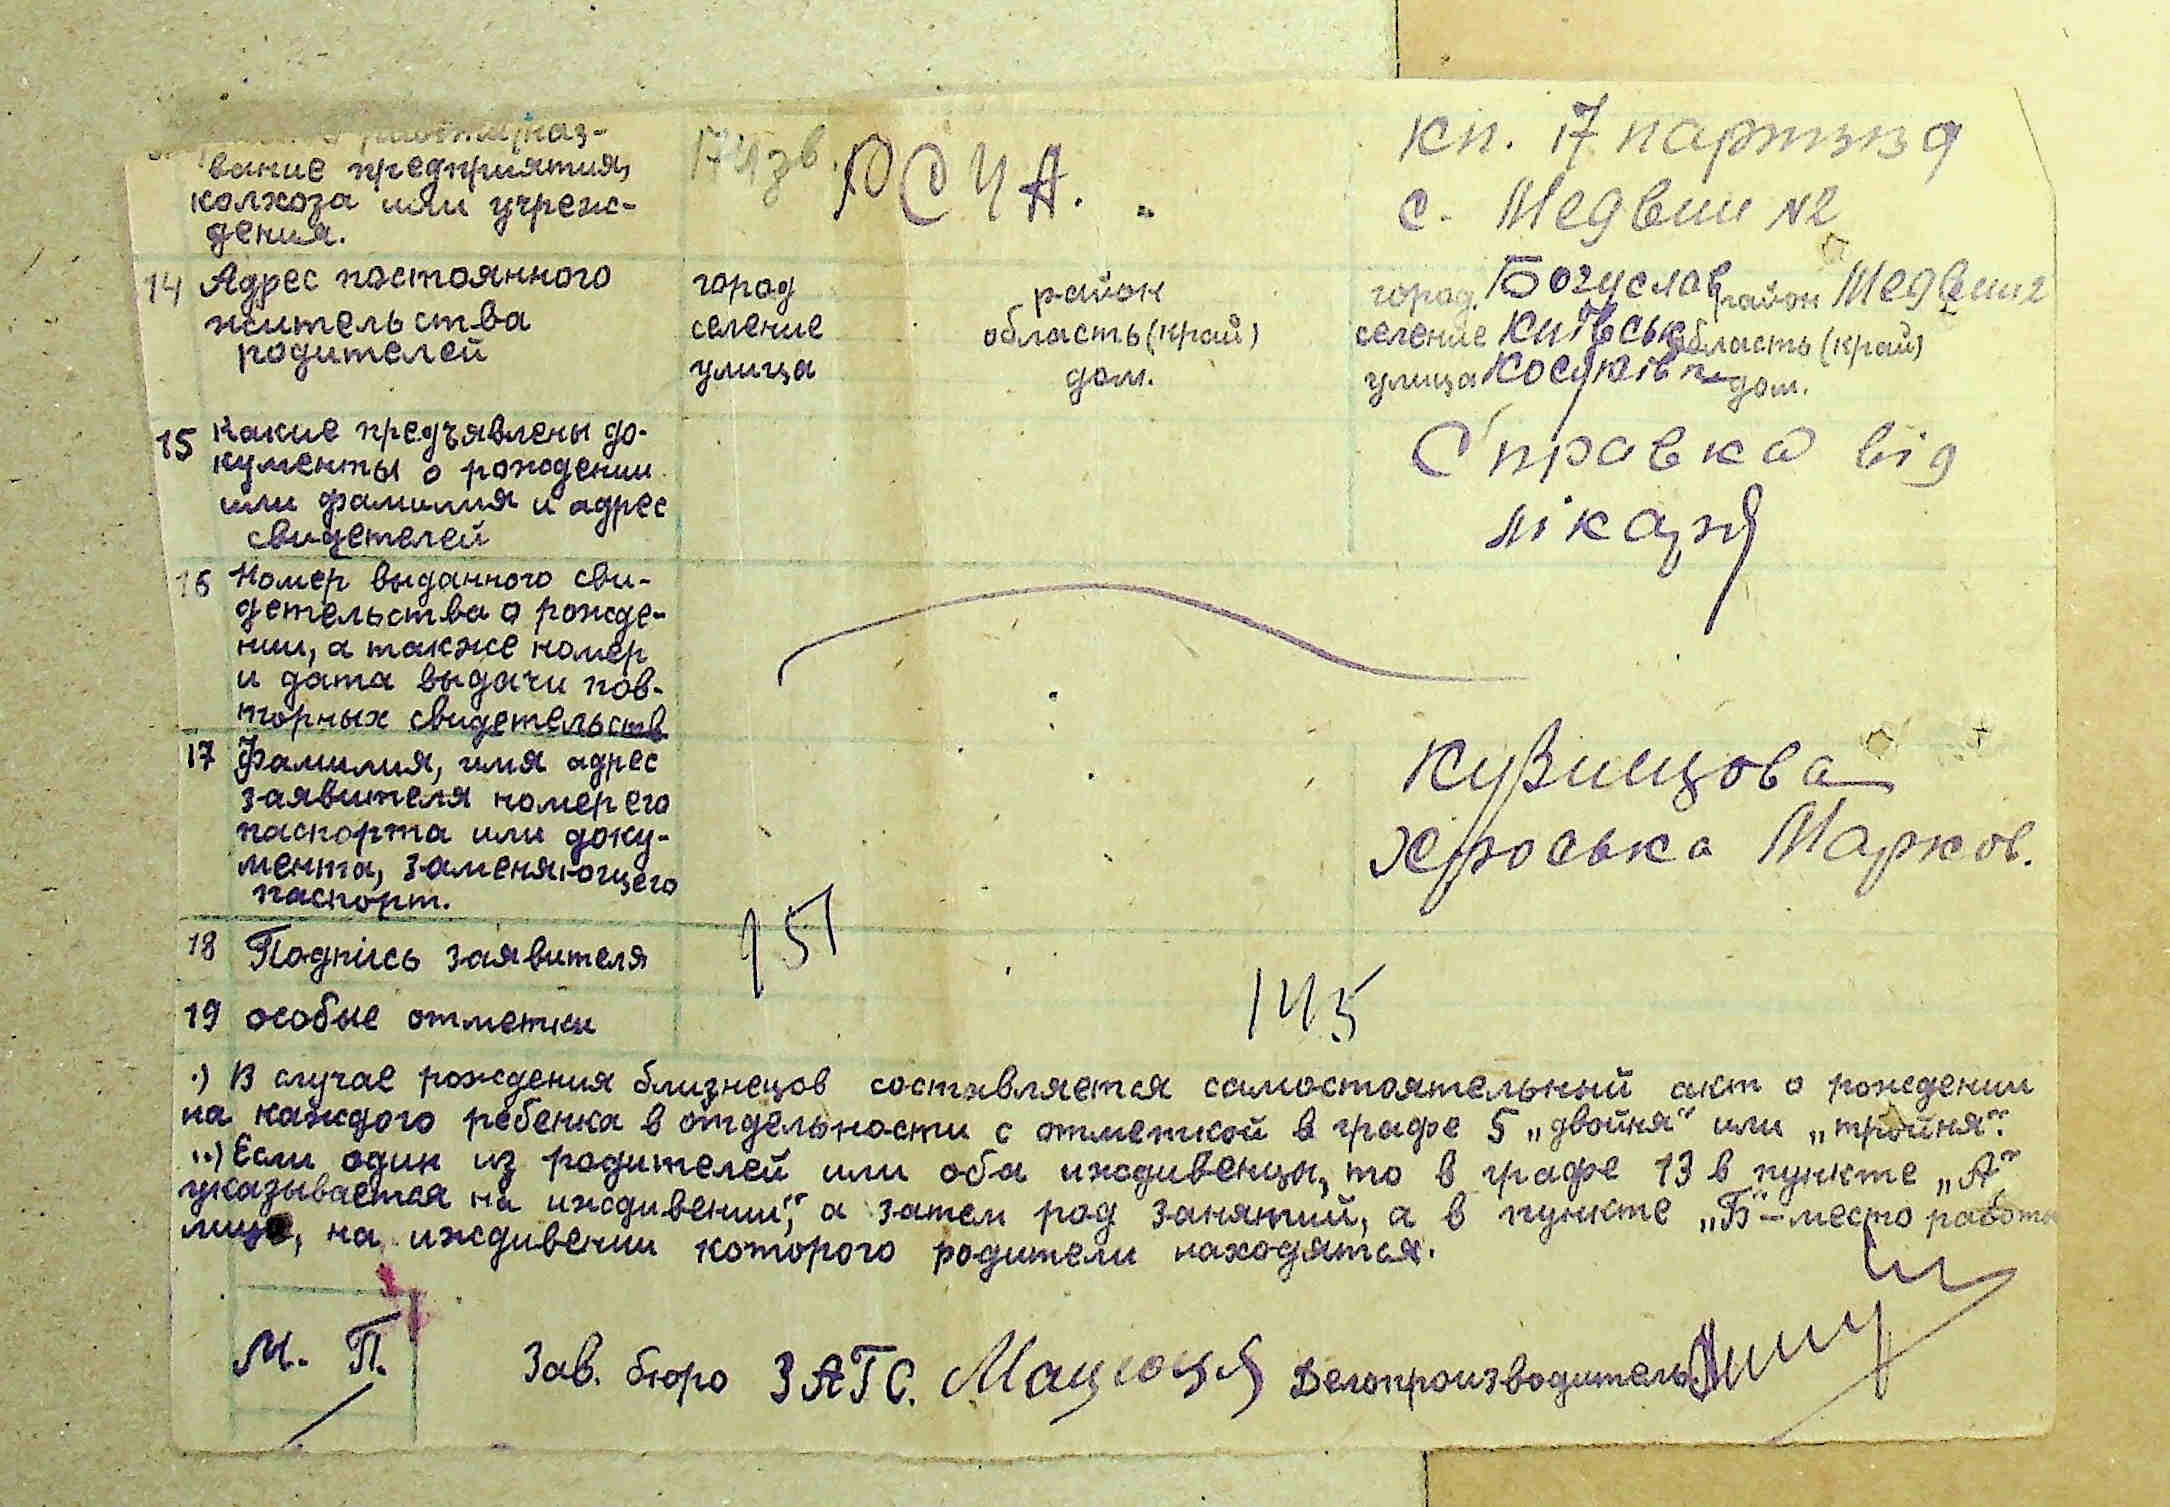 вание предприятия,
колхоза или учреж-
дения.
РСЧА.
кп. 17 партзізд
с. Медвин №2
14 Адрес постоянного
жительства
родителей
город район
селение область (край)
улица дом.
город Богуслав район Медвин
селение Київськ область (край)
улица дом.
15 Какие предъявлены до-
кументы о рождении
или фамилия и адрес
свидетелей
Справка від
лікаря
16 Номер выданного сви-
детельства о рожде-
нии, а также номер
и дата выдачи пов-
торных свидетельств
17 Фамилия, имя адрес
заявителя номер его
паспорта или доку-
мента, заменяющего
паспорт.
Кузницова
Хфроська Марков.
18 Подпись заявителя
151
19 особые отметки
145
.) В случае рождения близнецов составляется самостоятельный акт о рождении
на каждого ребенка в отдельности с отметкой в графе 5 „двойня“ или „тройня“.
..) Если один из родителей или оба иждивенцы, то в графе 13 в пункте „А“
указывается на иждивении“, а затем род занятий, а в пункте „Б“ – место работы
лица, на иждивении которого родители находятся.
М. П. Зав. бюро ЗАГС. Делопроизводитель